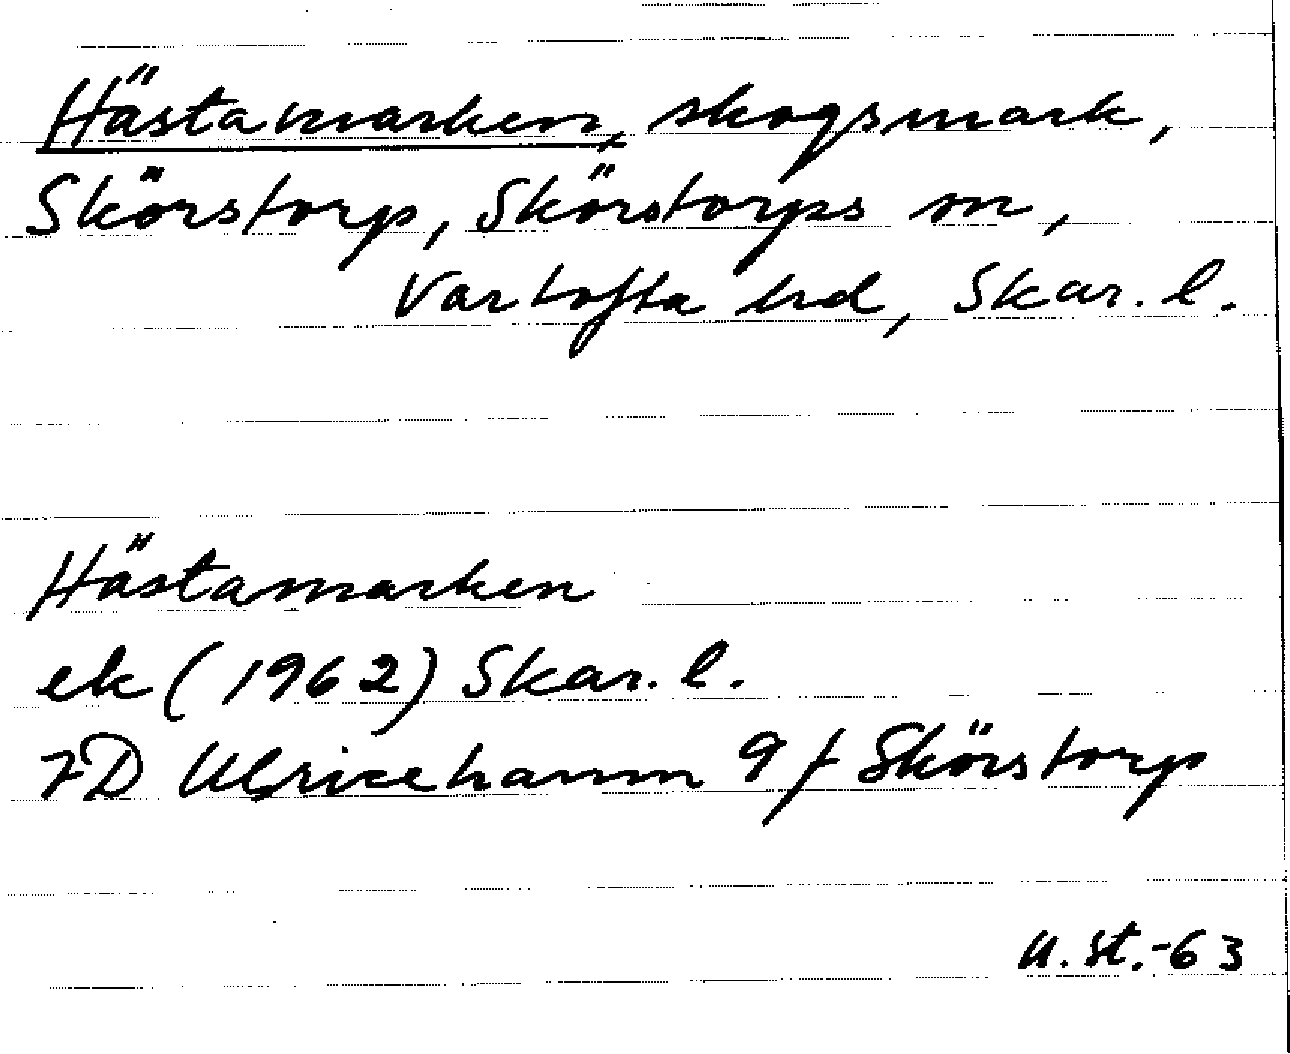 Hästamarken, skogsmark,
Skörstorp, Skörstorps sn,
Vartofta hrd, Skar. l.
Hästamarken
ek (1962) Skar. l.
7D Ulricehamn 9 f Skörstorp
U. St. -63